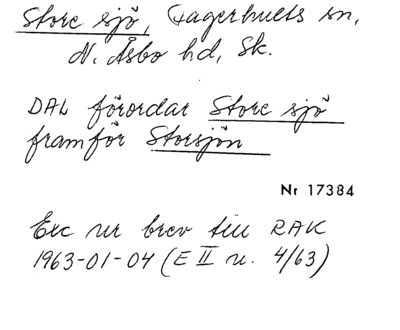 Store sjö, Fagerhults sn,
N. Åsbo hd, Sk.
DAL förordar Store sjö
framför Storsjön
Nr 17384
Exc ur brev till RAK
1963-01-04 (E II u. 4/63)